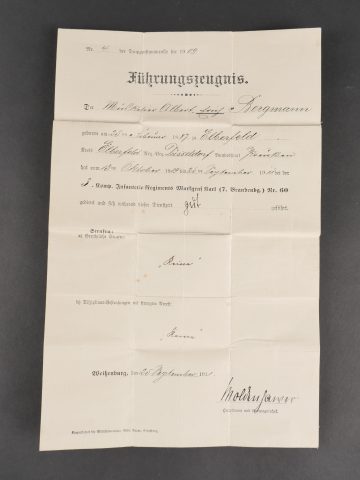 Nr. 4 der Truppenstammrolle für 1909.
Führungszeugnis.
Der Musketier Albert Bergmann
geboren am 25 ten Februar 1887 zu Elberfeld
Kreis Elberfeld Reg. Bez. Düsseldorf Bundesstaat Preußen
hat vom Oktober 1909 bis September 19 bei der
Komp. Infanterie-Regiments Markgraf Karl (7. Brandenbg.) Nr. 60
gedient und sich während dieser Dienstzeit gut geführt.
Strafen:
a) Gerichtliche Strafen:
„Keine“
b) Disziplinar-Bestrafungen mit strengem Arrest:
„Keine“
Weißenburg, den September
Hauptmann und Kompagniechef.